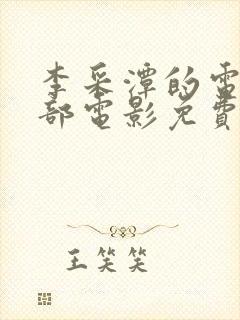 李采潭的電
部電影免費
王笑笑